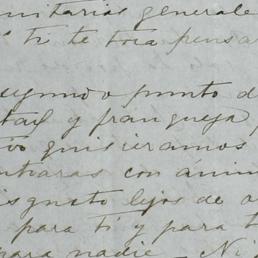 nitarias generale
a ti te toca pensa
segundo punto d
tad y franqueza
quisieramos
ntraras con ánim
isgusto lejos de a
para ti y para t
para nadie. Ni